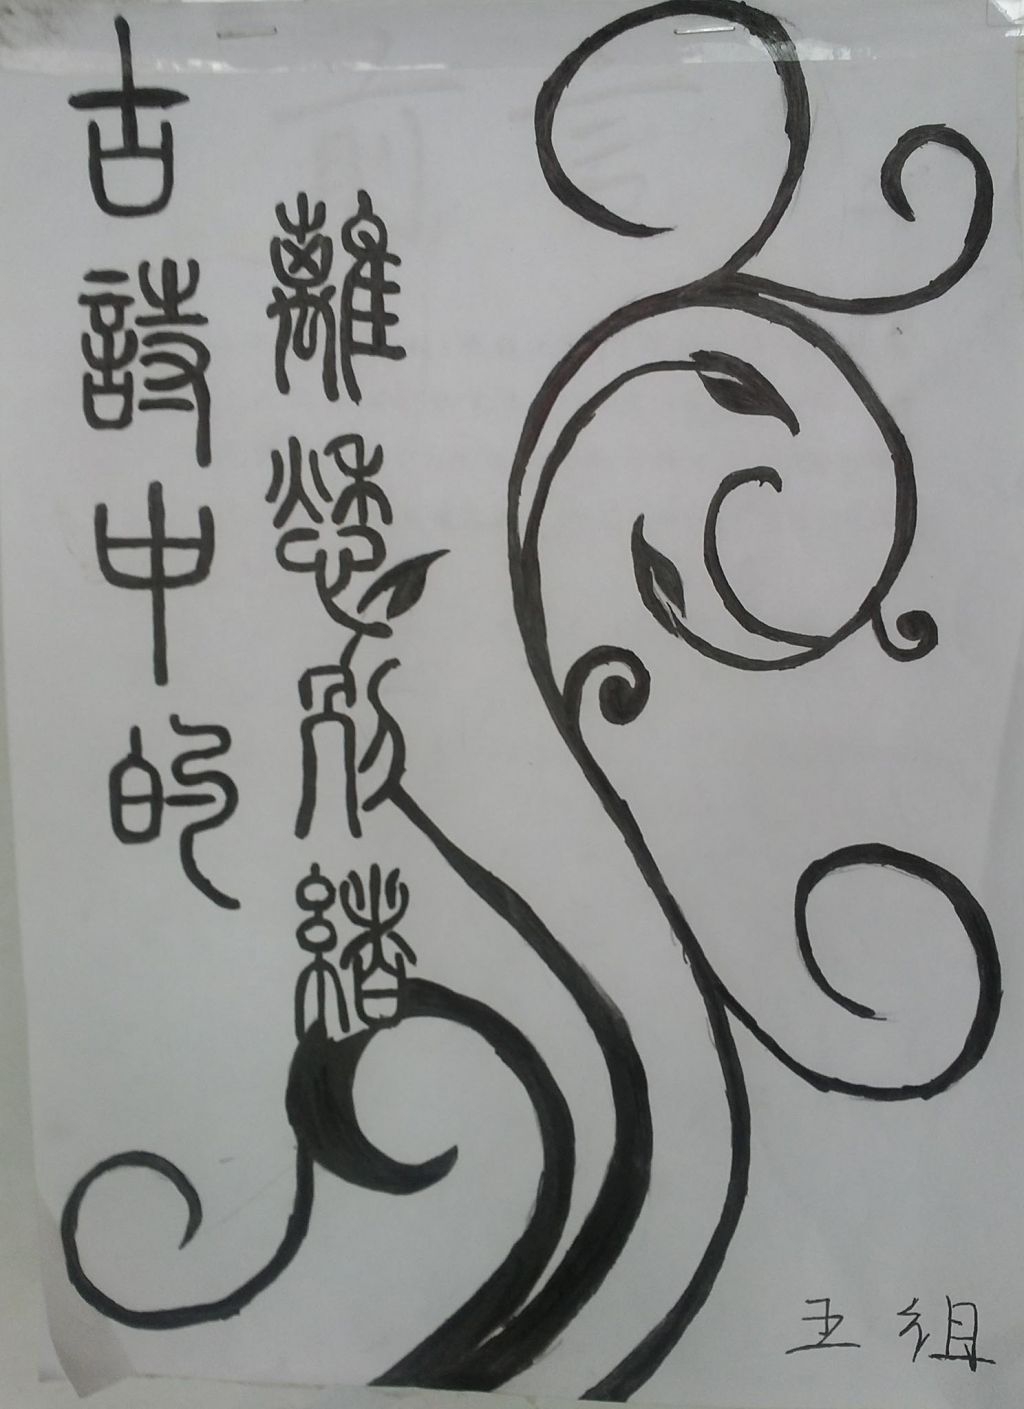 古詩中的
離愁別緒
五组